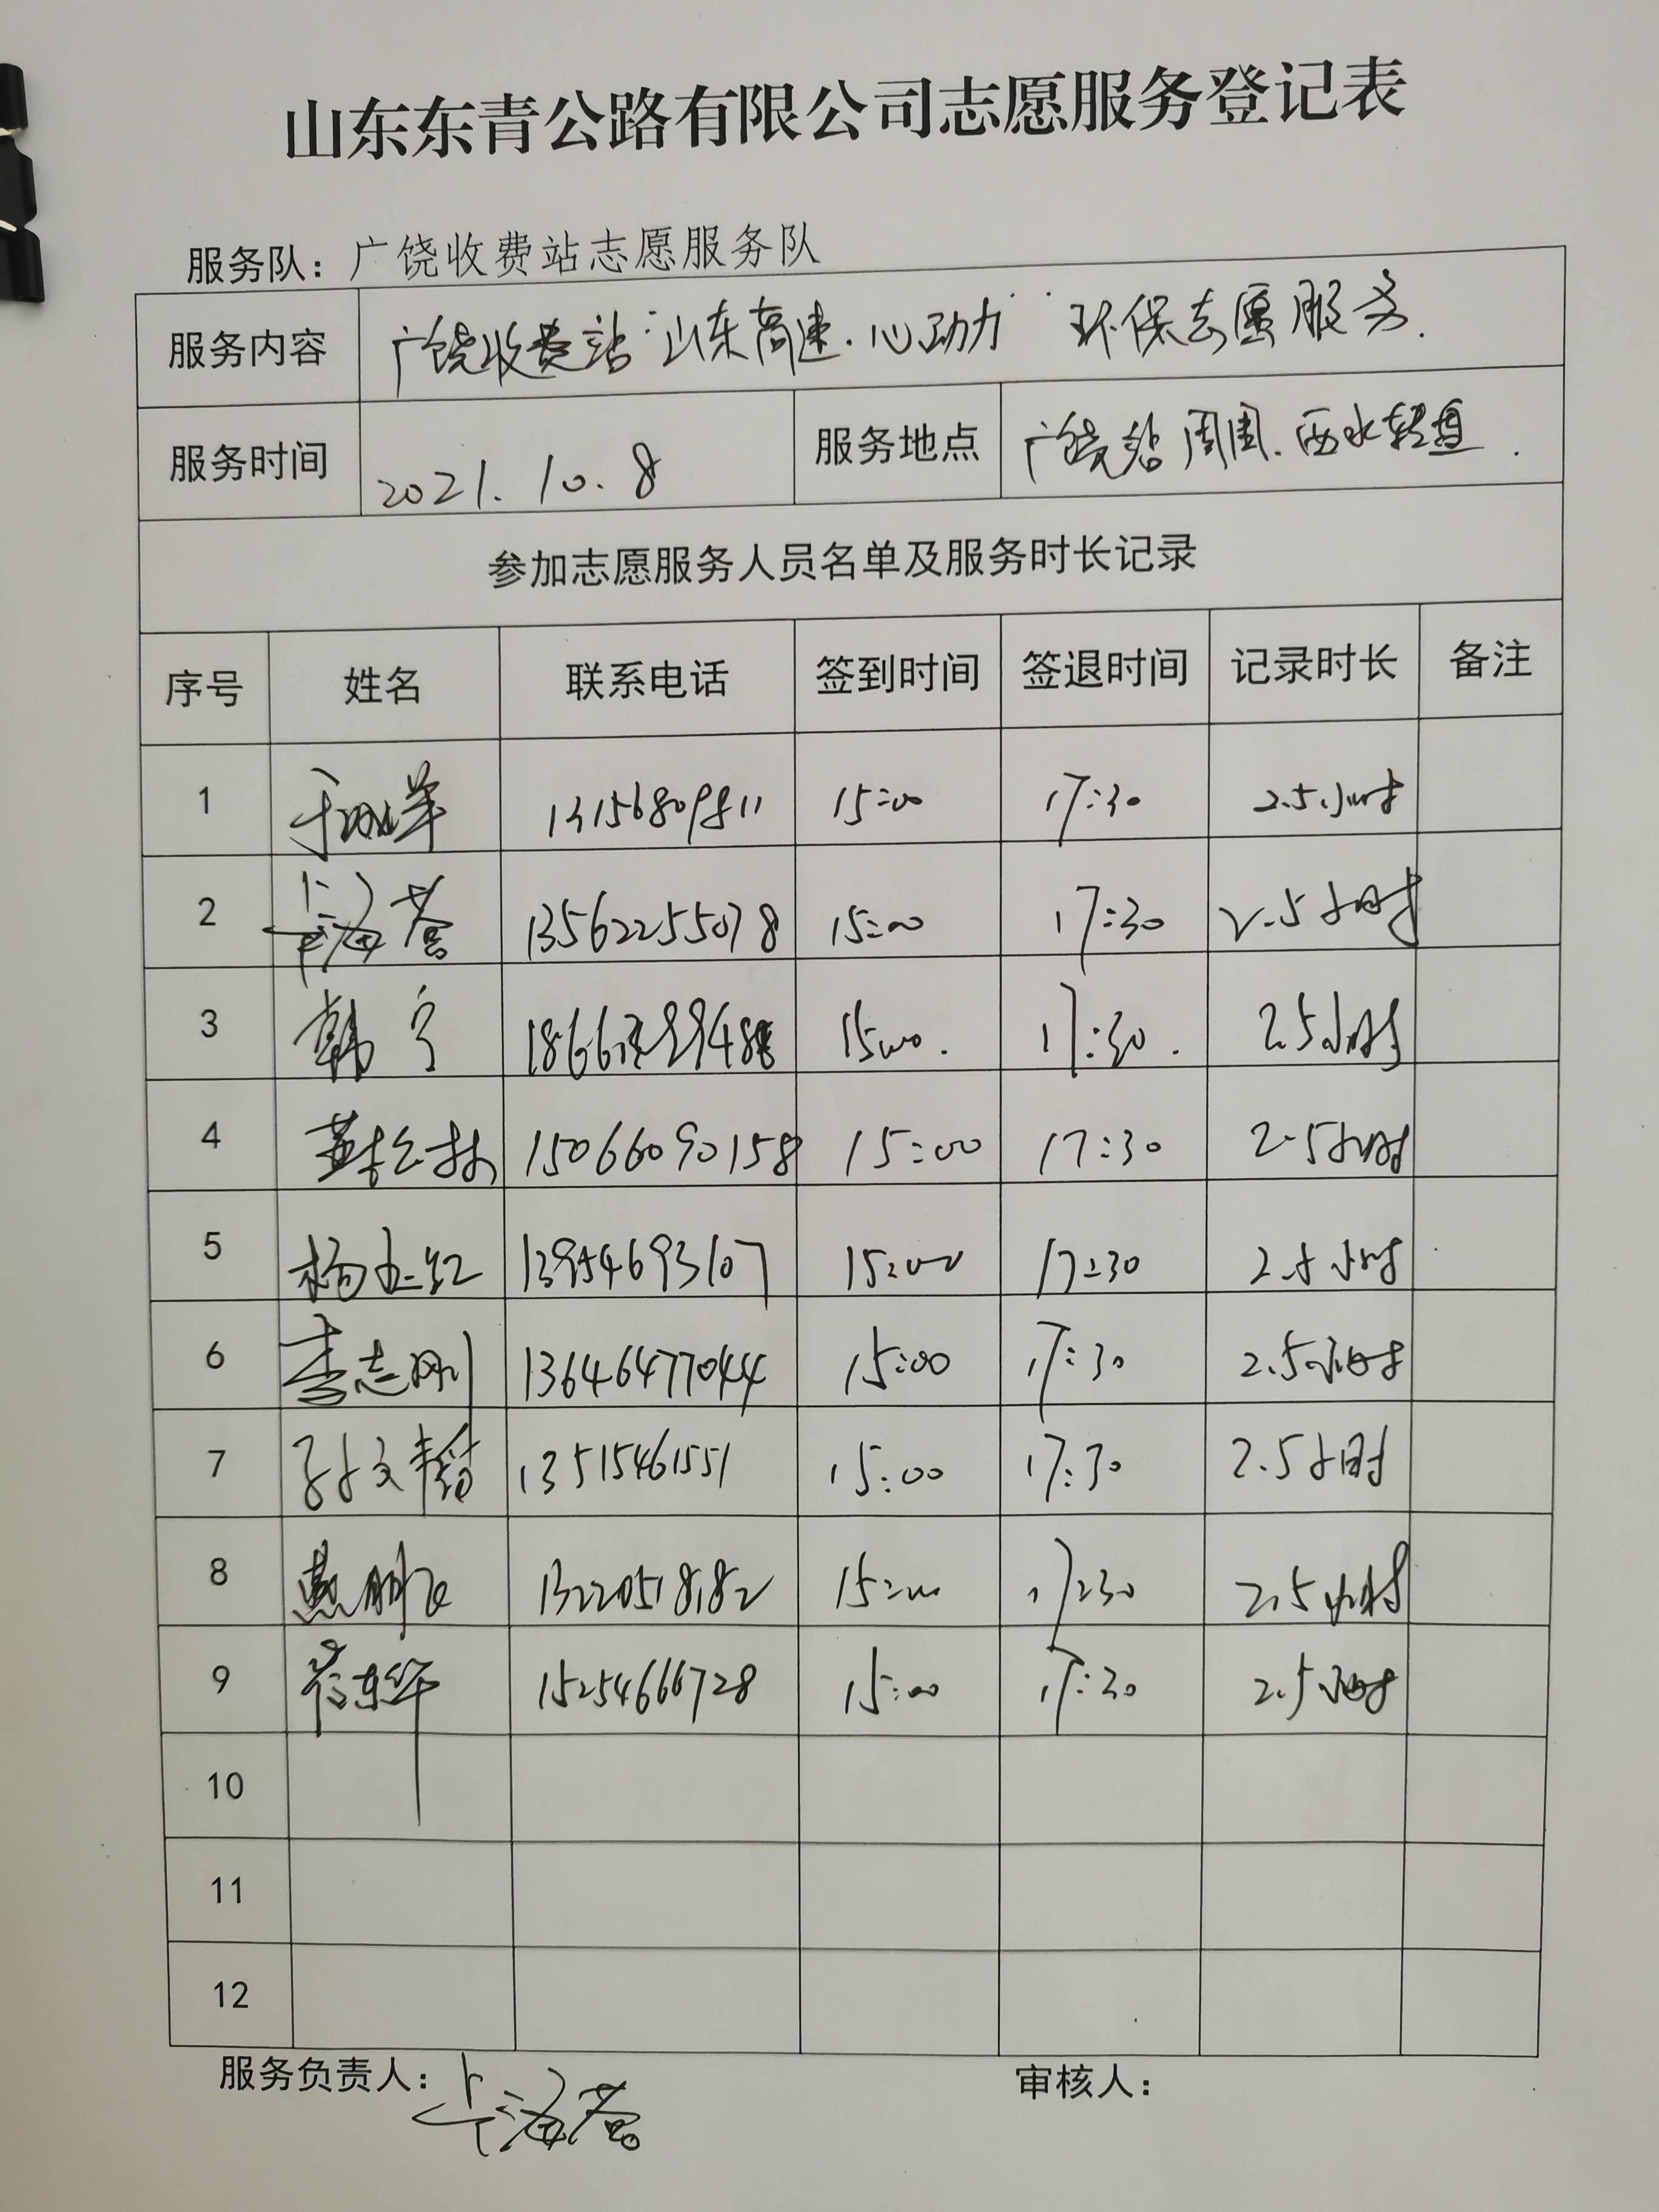 山东东青公路有限公司志愿服务登记表
服务队：广饶收费站志愿服务队
服务内容 广饶收费站“山东高速·心动力”环保志愿服务.
服务时间 2021.10.8 服务地点 广饶站周围.西水转盘.
参加志愿服务人员名单及服务时长记录
序号 姓名 联系电话 签到时间 签退时间 记录时长 备注
1 13156809811 15:00 17:30 2.5小时
2 13562255078 15:00 17:30 2.5小时
3 韩宁 15:00. 17:30. 2.5小时
4 15066090158 15:00 17:30 2.5小时
5 13954693107 15:00 17:30 2.5小时
6 李志刚 13646477044 15:00 17:30 2.5小时
7 孙文韬 13515461551 15:00 17:30 2.5小时
8 燕鹏飞 13220518182 15:00 17:30 2.5小时
9 崔东华 15254666728 15:00 17:30 2.5小时
10
11
12
服务负责人： 审核人：